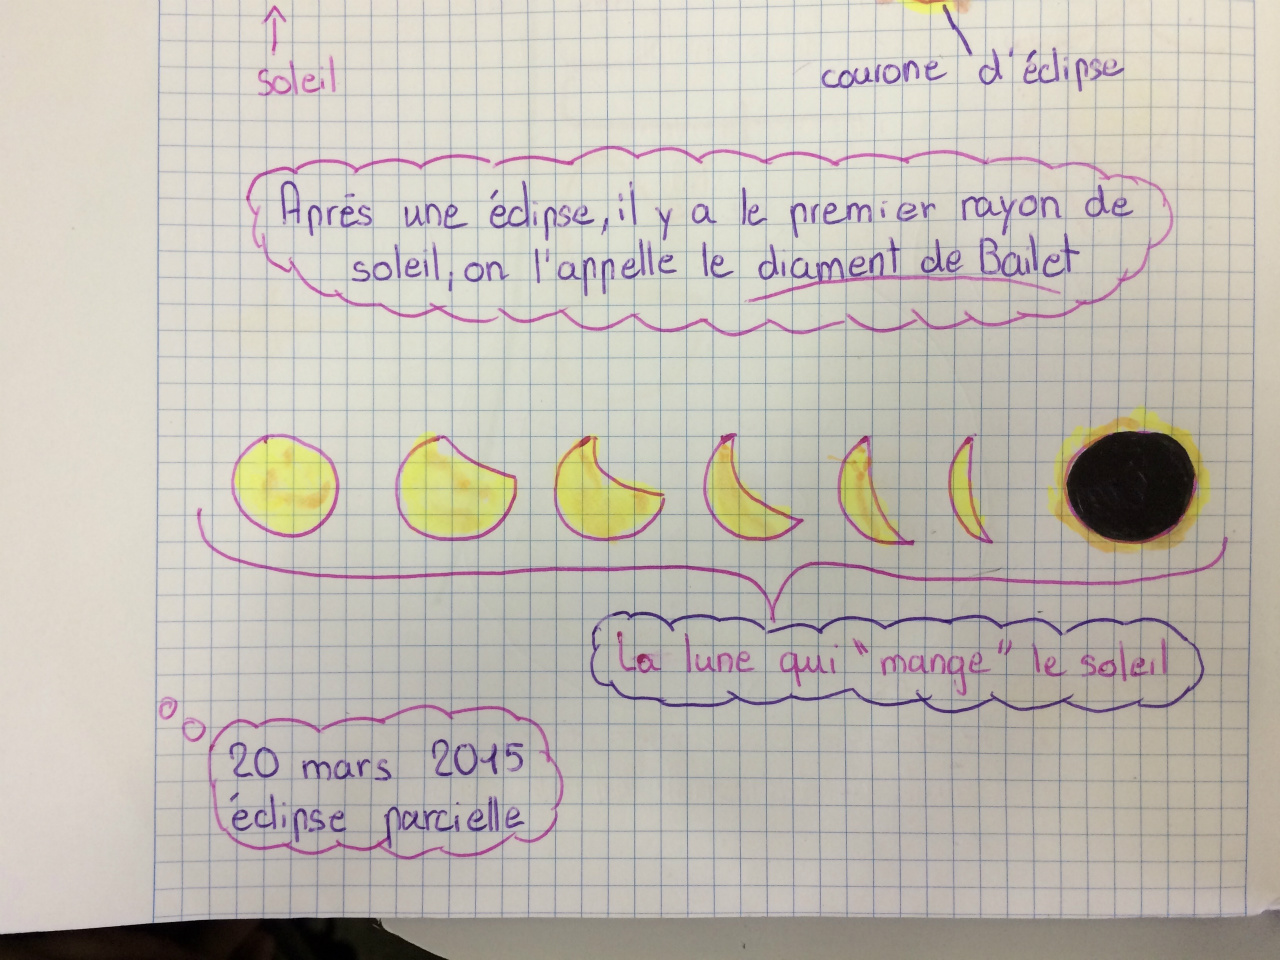 soleil
courone d'éclipse
Aprés une éclipse, il y a le premier rayon de
soleil, on l'appelle le diament de Bailet
La lune qui "mange" le soleil
20 mars 2015
éclipse parcielle